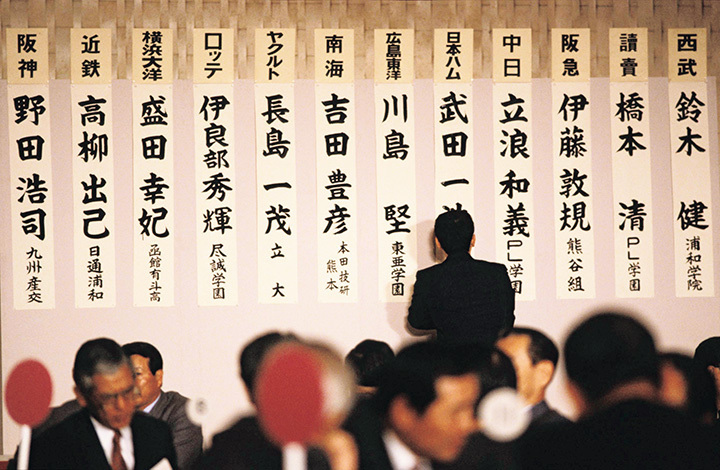 西武
鈴木 健
浦和学院
讀賣
橋本 清
PL学園
阪急
伊藤敦規
熊谷組
中日
立浪和義
PL学園
日本ハム
武田一
広島東洋
川島 堅
東亜学園
南海
吉田豊彦
本田技研
熊本
ヤクルト
長島一茂
立大
ロッテ
伊良部秀輝
尽誠学園
横浜大洋
盛田幸妃
函館有斗高
近鉄
高柳出己
日通浦和
阪神
野田浩司
九州産交